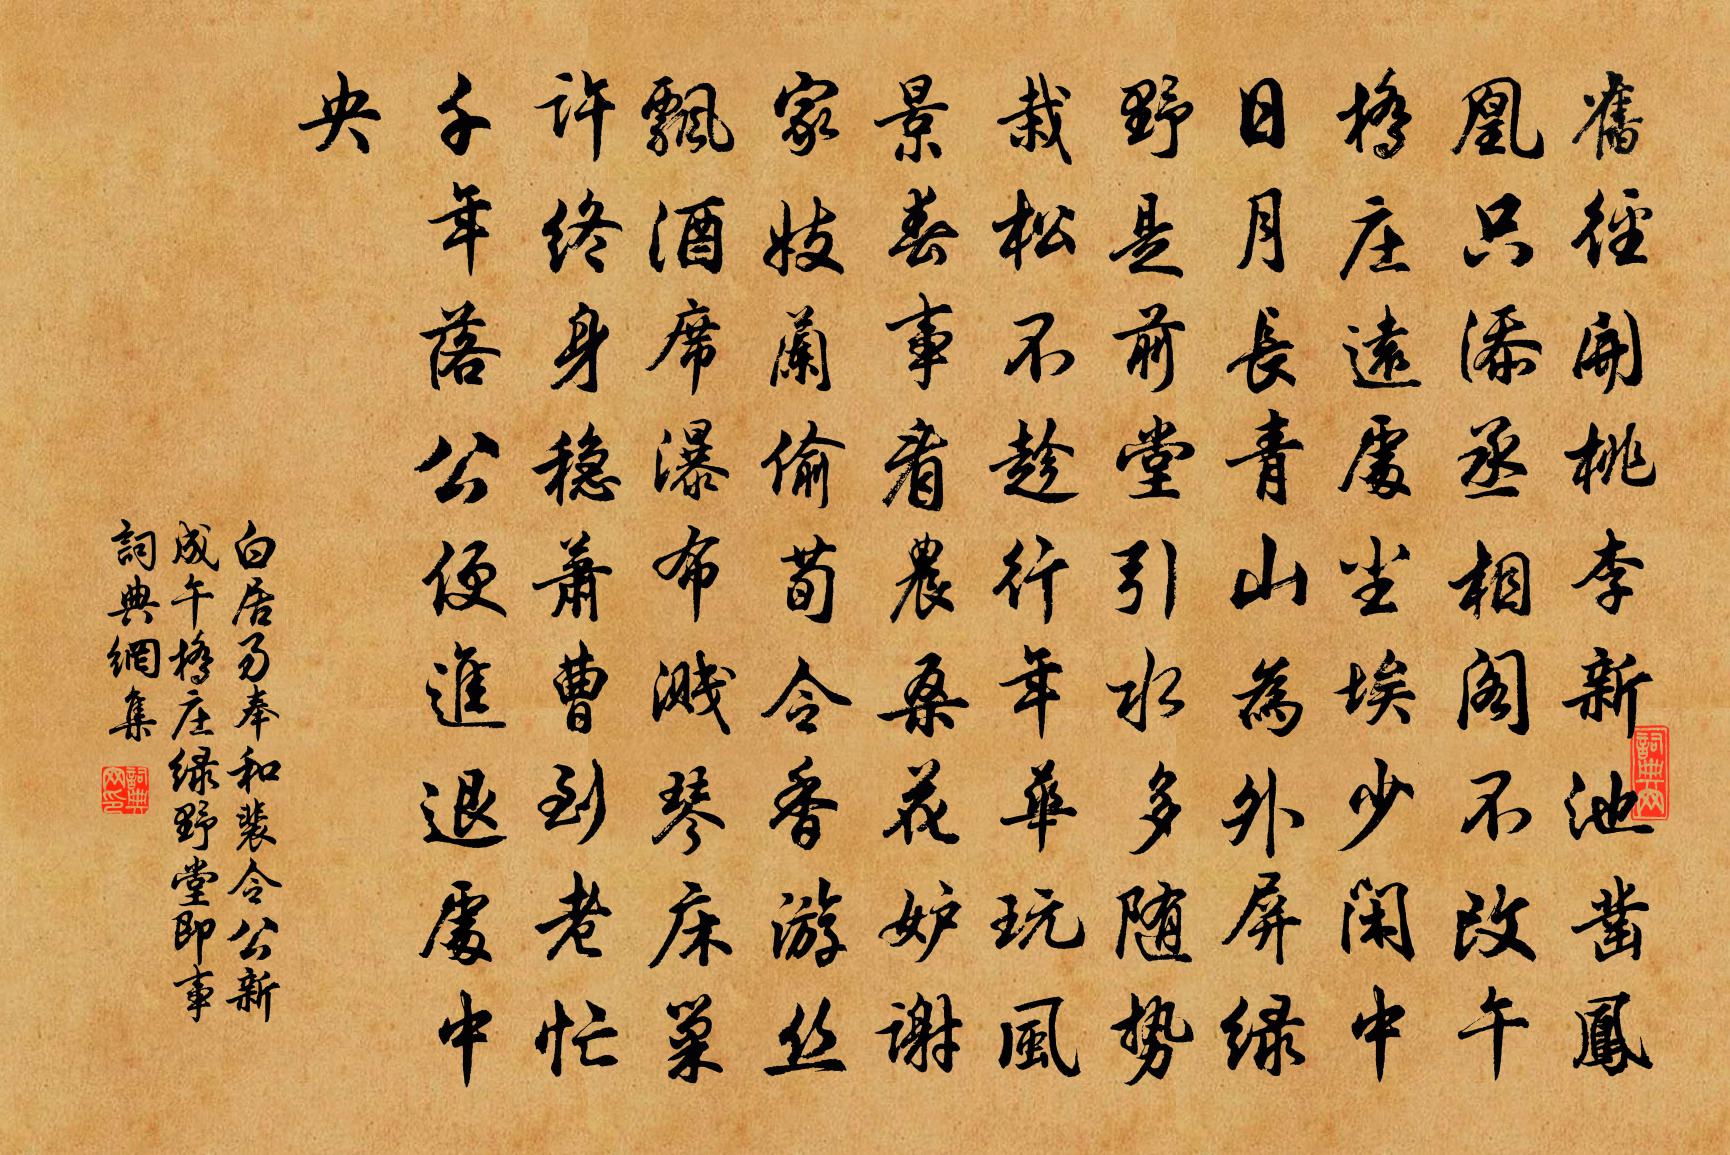 舊徑開桃李新池凿鳳
凰只添丞相阁不改午
橋庄遠處尘埃少闲中
日月長青山為外屏绿
野是前堂引水多随势
栽松不趁行年華玩風
景春事看農桑花妒謝
家妓蘭偷荀令香游丝
飘酒席瀑布溅琴床巢
许终身稳蕭曹到老忙
千年落公便進退處中
央
白居易奉和裴令公新
成午橋庄绿野堂即事
詞典網集
詞典网
詞典网印